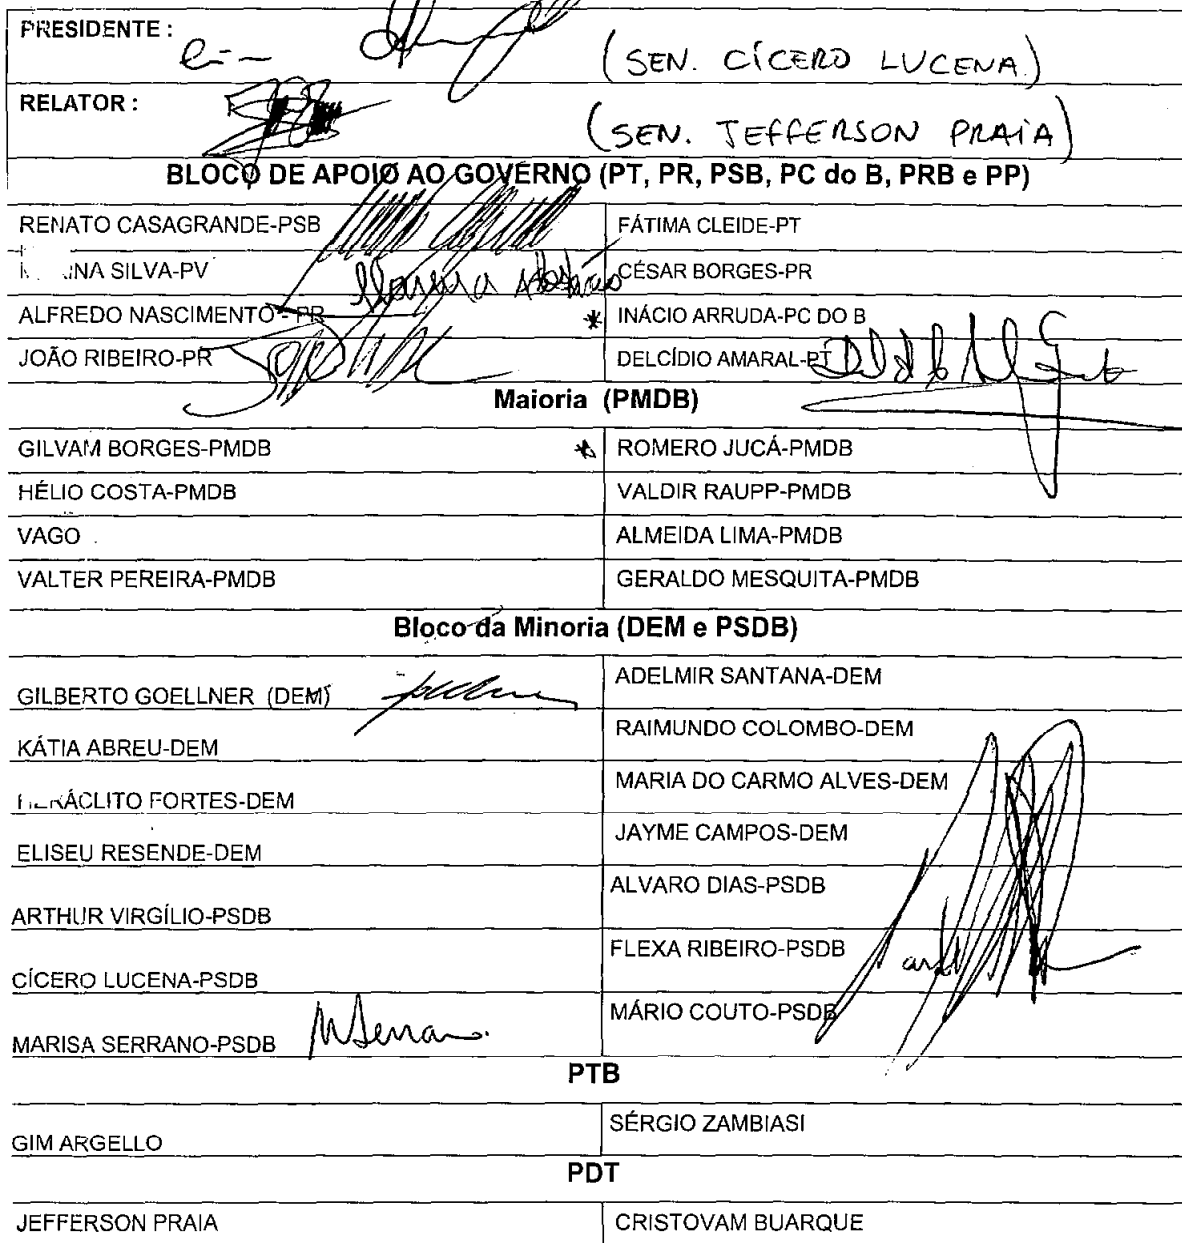 PRESIDENTE :
(SEN. CÍCERO LUCENA)
RELATOR :
(SEN. JEFFERSON PRAIA)
BLOCO DE APOIO AO GOVERNO (PT, PR, PSB, PC do B, PRB e PP)
RENATO CASAGRANDE-PSB FÁTIMA CLEIDE-PT
SILVA-PV CÉSAR BORGES-PR
ALFREDO NASCIMENTO - PR * INÁCIO ARRUDA-PC DO B
JOÃO RIBEIRO-PR DELCÍDIO AMARAL-PT
Maioria (PMDB)
GILVAM BORGES-PMDB * ROMERO JUCÁ-PMDB
HÉLIO COSTA-PMDB VALDIR RAUPP-PMDB
VAGO ALMEIDA LIMA-PMDB
VALTER PEREIRA-PMDB GERALDO MESQUITA-PMDB
Bloco da Minoria (DEM e PSDB)
GILBERTO GOELLNER (DEM) ADELMIR SANTANA-DEM
KÁTIA ABREU-DEM RAIMUNDO COLOMBO-DEM
HERÁCLITO FORTES-DEM MARIA DO CARMO ALVES-DEM
ELISEU RESENDE-DEM JAYME CAMPOS-DEM
ARTHUR VIRGÍLIO-PSDB ALVARO DIAS-PSDB
CÍCERO LUCENA-PSDB FLEXA RIBEIRO-PSDB
MARISA SERRANO-PSDB MSerrano. MÁRIO COUTO-PSDB
PTB
GIM ARGELLO SÉRGIO ZAMBIASI
PDT
JEFFERSON PRAIA CRISTOVAM BUARQUE